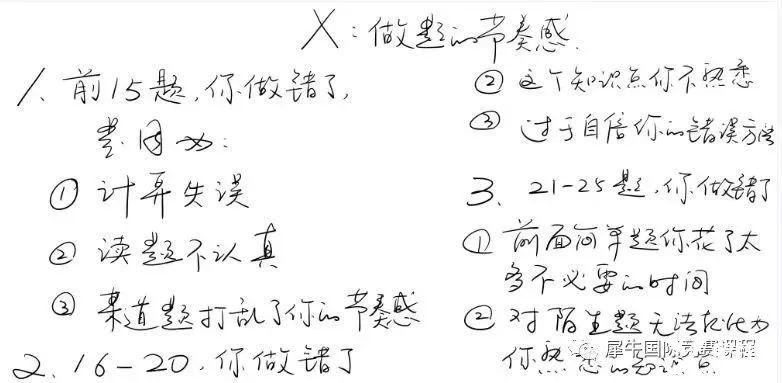 X：做题的节奏感.
1、前15题，你做错了，
是因为：
① 计算失误
② 读题不认真
③ 某道题打乱了你的节奏感
2、16-20，你做错了
② 这个知识点你不熟悉
③ 过于自信你的错误方法
3、21-25题，你做错了
① 前面简单题你花了太
多不必要的时间
② 对陌生题无法转化为
你熟悉的知识点
犀牛国际竞赛课程